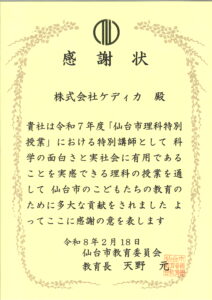 感謝状
株式会社ケディカ 殿
貴社は令和7年度「仙台市理科特別
授業」における特別講師として 科
学の面白さと実社会に有用である
ことを実感できる理科の授業を通
して 仙台市のこどもたちの教育の
ために多大な貢献をされました よ
ってここに感謝の意を表します
令和8年2月18日
仙台市教育委員会
教育長 天野 元